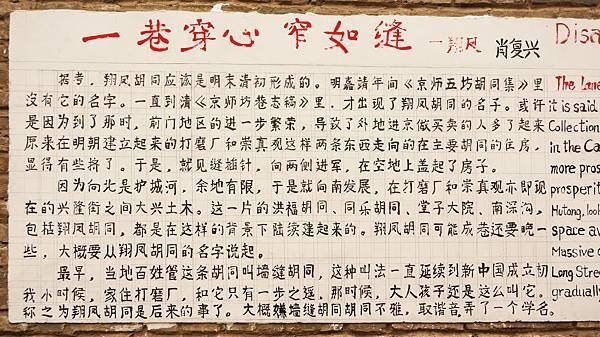 一巷穿心 窄如缝 一翔凤 肖复兴
据考，翔凤胡同应该是明末清初形成的。明嘉靖年间《京师五坊胡同集》里
没有它的名字。一直到清《京师坊巷志稿》里，才出现了翔凤胡同的名子。或许
是因为到了那时，前门地区的进一步繁荣，导致了外地进京做买卖的人多了起来
原来在明朝建立起来的打磨厂和崇真观这样两条东西走向的在主要胡同的住房，
显得有些挤了。于是，就见缝插针，向两侧进军，在空地上盖起了房子。
因为向北是护城河，余地有限，于是就向南发展，在打磨厂和崇真观亦即现
在的兴隆街之间大兴土木。这一片的洪福胡同、同乐胡同、堂子大院、南深沟，
包括翔凤胡同，都是在这样的背景下陆续建起来的。翔凤胡同可能成巷还要晚一
些，大概要从翔凤胡同的名字说起。
最早，当地百姓管这条胡同叫墙缝胡同，这种叫法一直延续到新中国成立初
我小时候，家住打磨厂，和它只有一步之遥，那时候，大人孩子还是这么叫它。
称之为翔凤胡同是后来的事了。大概嫌墙缝胡同胡同不雅，取谐音弄了一个学名。
Disa
The Lane
it is said
Collection
in the Ca
more pros
prosperit
Hutong, look
space av
Massive c
Long Stre
gradually